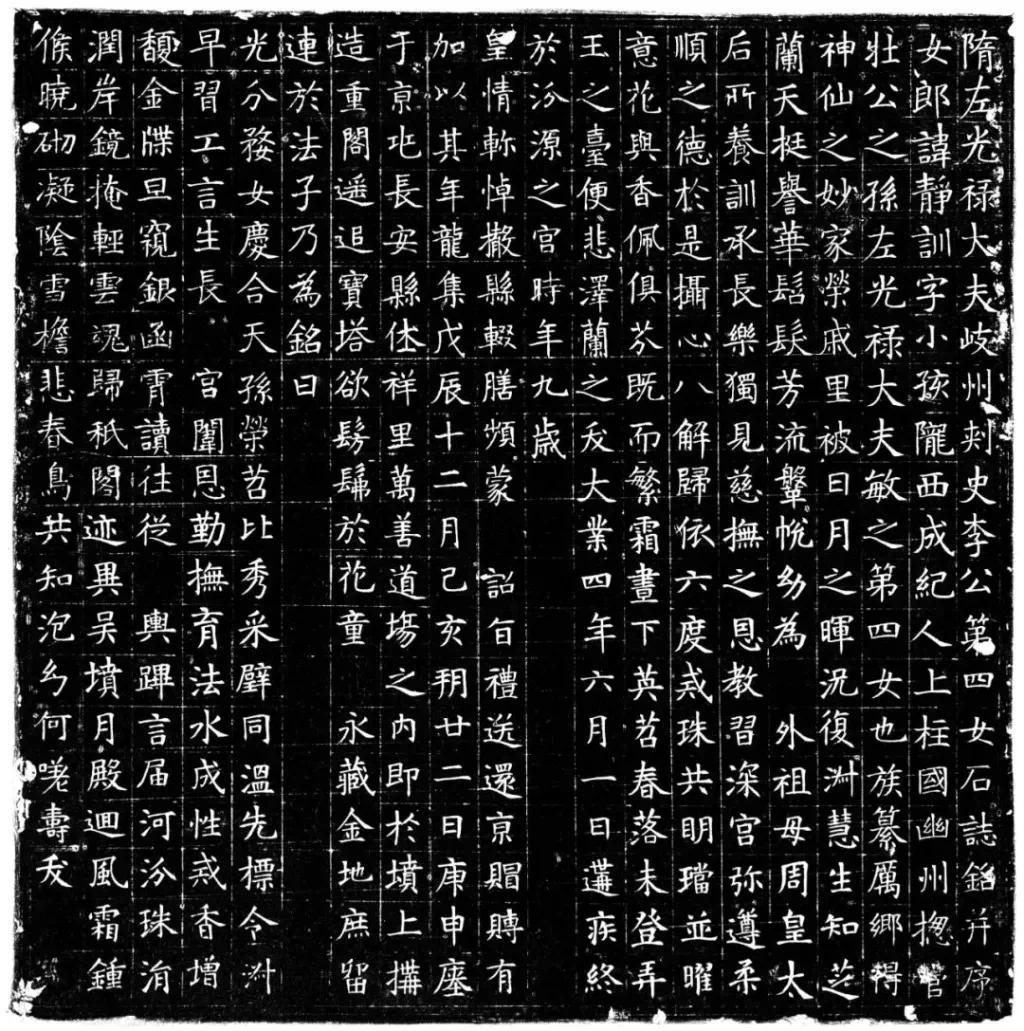 隋左光禄大夫岐州刾史李公第四女石誌銘并序
女郎諱靜訓字小孩隴西成紀人上柱國幽州揔管
壮公之孫左光禄大夫敏之第四女也族纂厲鄉得
神仙之妙家榮戚里被日月之暉況復淑慧生知芝
蘭天挺譽華髫髮芳流鞶帨幼為 外祖母周皇太
后所養訓承長樂獨見慈撫之恩教習深宮弥遵柔
順之德於是攝心八解歸依六度戒珠共明璫並曜
意花與香佩俱芬既而繁霜晝下英苕春落未登弄
玉之臺便悲澤蘭之夭大業四年六月一日遘疾終
於汾源之宮時年九歲
皇情軫悼撤縣輟膳頻蒙 詔旨禮送還京賵賻有
加以其年龍集戊辰十二月己亥朔廿二日庚申塟
于京地長安縣休祥里萬善道場之內即於墳上搆
造重閣遥追寶塔欲髣髴於花童 永藏金地庶留
連於法子乃為銘曰
光分婺女慶合天孫榮苕比秀采璧同溫先標令淑
早習工言生長 宮闈恩勤撫育法水成性戒香增
馥金牒旦窺銀函霄讀往從 輿蹕言届河汾珠涓
潤岸鏡掩輕雲魂歸秖閣迹異吳墳月殿迴風霜鍾
候曉砌凝陰雪檐悲春鳥共知泡幻何嗟壽夭